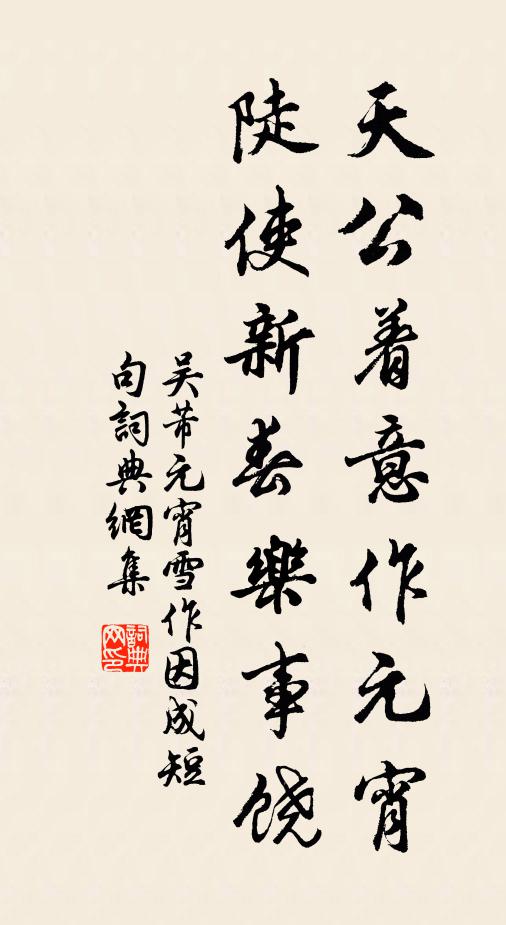 天公着意作元宵
陡使新春樂事饶
吴芾元宵雪作因成短
句詞典網集
詞典
网印